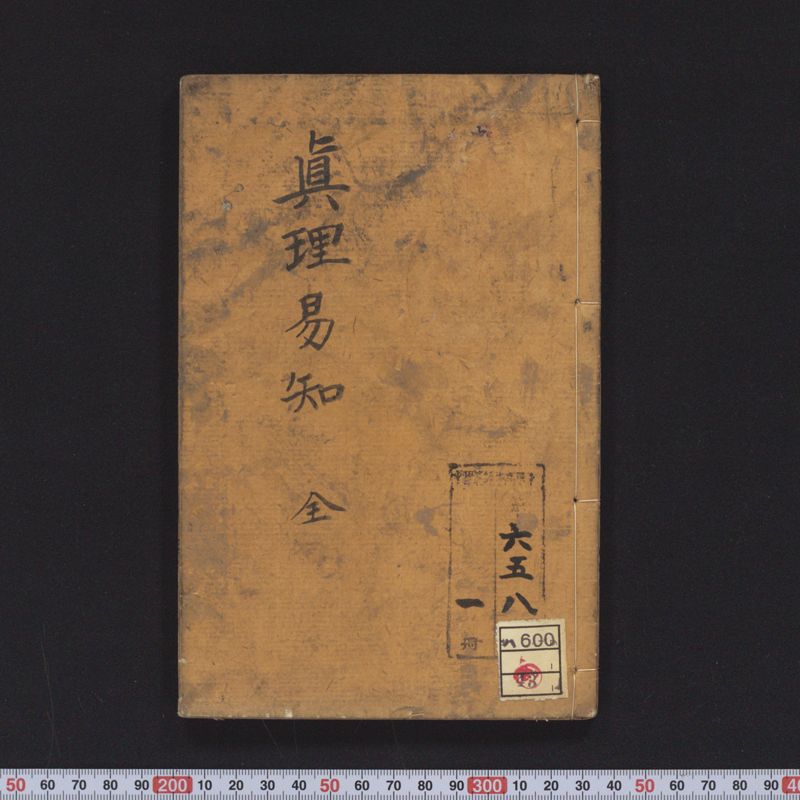 眞理易知 全
六五八
一
冊
600
50 60 70 80 90 200 10 20 30 40 50 60 70 80 90 300 10 20 30 40 50 60 70 80 90